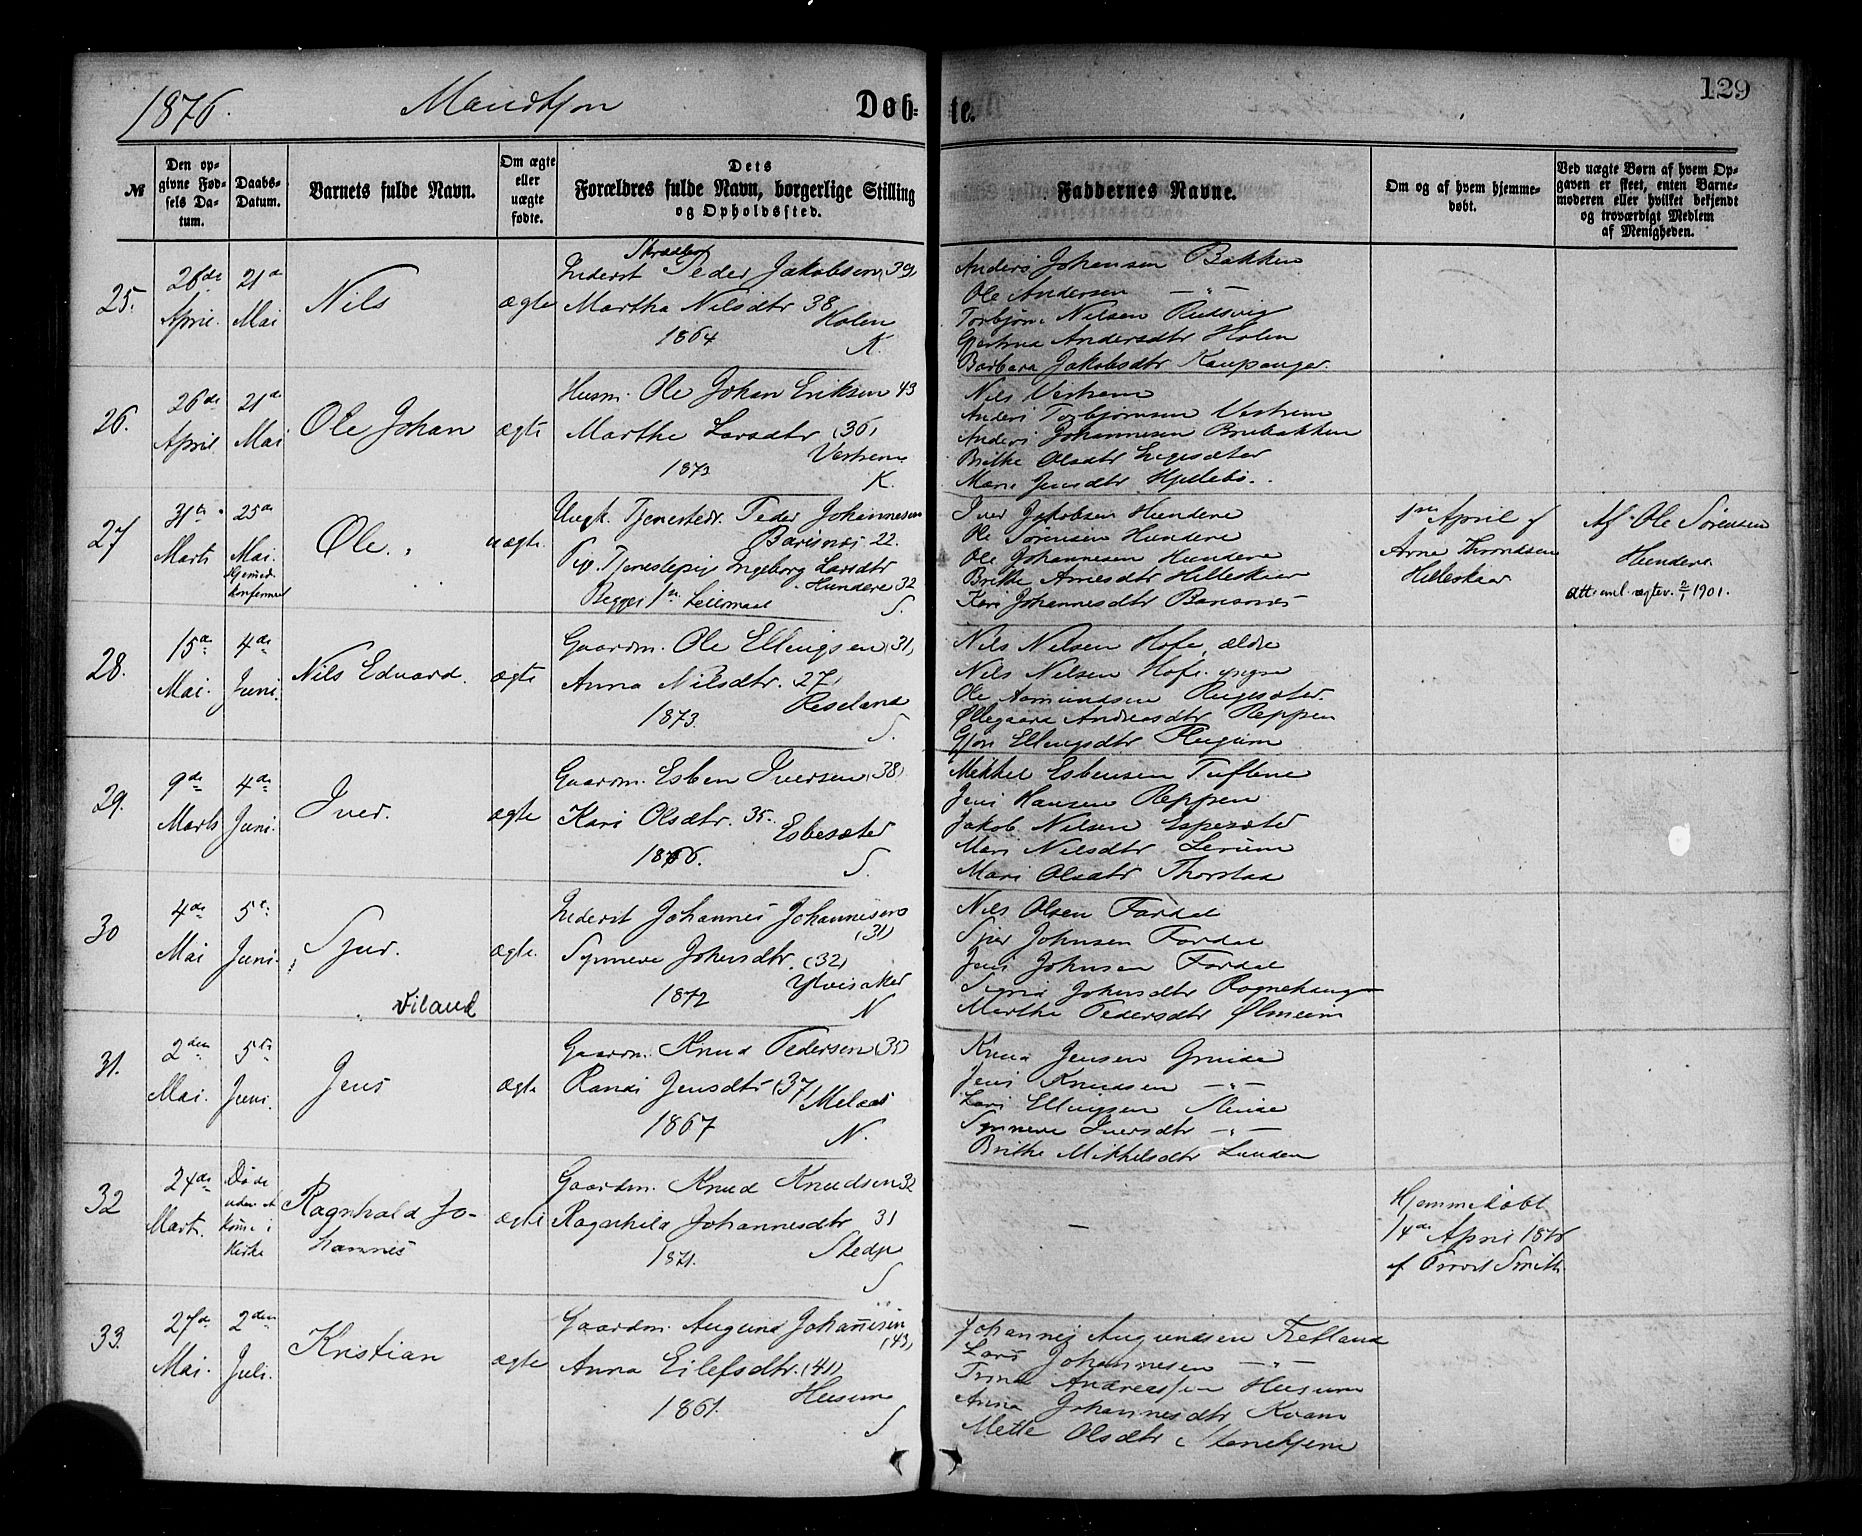 129
1876. Mandkjøn Døb- te.
№
Den op-
givne Fød-
sels Da-
tum.
Daabs-
Datum.
Barnets fulde Navn.
Om ægte
eller
uægte
fødte.
Dets
Forældres fulde Navn, borgerlige Stilling
og Opholdssted.
Faddernes Navne.
Om og af hvem hjemme-
døbt.
Ved uægte Børn af hvem Op-
gaven er skeet, enten Barne-
moderen eller hvilket bekjendt
og troværdigt Medlem
af Menigheden.
25.
26de
April.
21de
Mai
Nils
ægte
Inderst Peder Jakobsen (39)
Martha Nilsdtr 38
Holen
1864
K.
Anders Johansen Bakken
Ole Andersen — „ —
Torbjørn Nilsen Rudsvig
Gjertrud Andersdtr Holen
Barbara Jakobsdtr Kaupanger.
26.
26de
April
21de
Mai
Ole Johan
ægte
Husm. Ole Johan Eriksen 43
Marthe Larsdtr (36)
Vestrem
1873
K.
Nils Vestrem
Anders Torbjørnsen Vestrem
Anders Johannesen Brubakken
Brithe Olsdtr Engesæter
Mari Jensdtr Hjellebø.
27
31te
Marts
25de
Mai.
Hjemmed.
Konfermert
Ole.
uægte.
Ungk. Tjenestedr. Peder Johannesen
Barsnes 22.
Pige Tjenestepig Ingeborg Larsdtr
Hundere 32
Begges 1ste Leiermaal
S
Iver Jakobsen Hundere
Ole Sørensen Hundere
Ole Johannesen Hundere
Brithe Arnesdtr Helleskaar
Kari Johannesdtr Barsnes
1ste April af
Arne Throndsen
Helleskaar
Af Ole Sørensen
Hundere
Att. uml. ægtev. 2/1 1901.
28.
15de
Mai.
4de
Juni.
Nils Edvard.
ægte
Gaardm. Ole Ellingsen (31)
Anna Nilsdtr. 27)
Reseland
1873.
S.
Nils Nilsen Hofe, ældre
Nils Nilsen Hofe yngre
Ole Aamundsen Rugesæter.
Øllegaard Andreasdtr Reppen
Gjøri Ellingsdtr Flugum
29.
9de
Marts
4de
Juni.
Iver.
ægte
Gaardm. Esben Iversen (38)
Kari Olsdtr. 35.
Esbesæter
1866.
S.
Mikkel Esbensen Tuftene
Jens Hansen Reppen
Jakob Nilsen Espesæter
Mari Nilsdtr Lerum
Mari Olsdtr Thorstad
30
4de
Mai
5te
Juni.
Sjur.
Viland
ægte.
Inderst Johannes Johannesen
(31)
Synneve Johnsdtr. (32)
Ylvisaker
1872
N
Nils Olsen Fardal
Sjur Johnsen Fardal
Jens Johnsen Fardal
Sigrid Johnsdtr Ragnehaug
Marthe Pedersdtr Ølmeim
31.
2den
Mai.
5te
Juni.
Jens
ægte
Gaardm. Knud Pedersen (35)
Randi Jensdtr (37)
Melaas
1867
N.
Knud Jensen Gruide
Jens Knudsen — „ —
Lars Ellingsen Slinde
Synneve Iversdtr — „ —
Brithe Mikkelsdtr Lunden
32
24de
Marts.
Døde
uden at
komme i
Kirke
Ragnvald Jo-
hannes
ægte
Gaardm. Knud Knudsen 32
Ragnhild Johannesdtr 31
Stedje
1871.
S
—
Hjemmedøbt
14de April 1876
af Provst Smith
33.
27de
Mai.
2den
Juli.
Kristian
ægte
Gaardm. Augund Johannesen
(43)
Anna Eilefsdtr. (41)
Husum
1861.
S
Johannes Augundsen Fretland
Lars Johannesen — „ —
Trine Andreassen Husum
Anna Johannesdtr Kvam
Mette Olsdtr Stenehjem